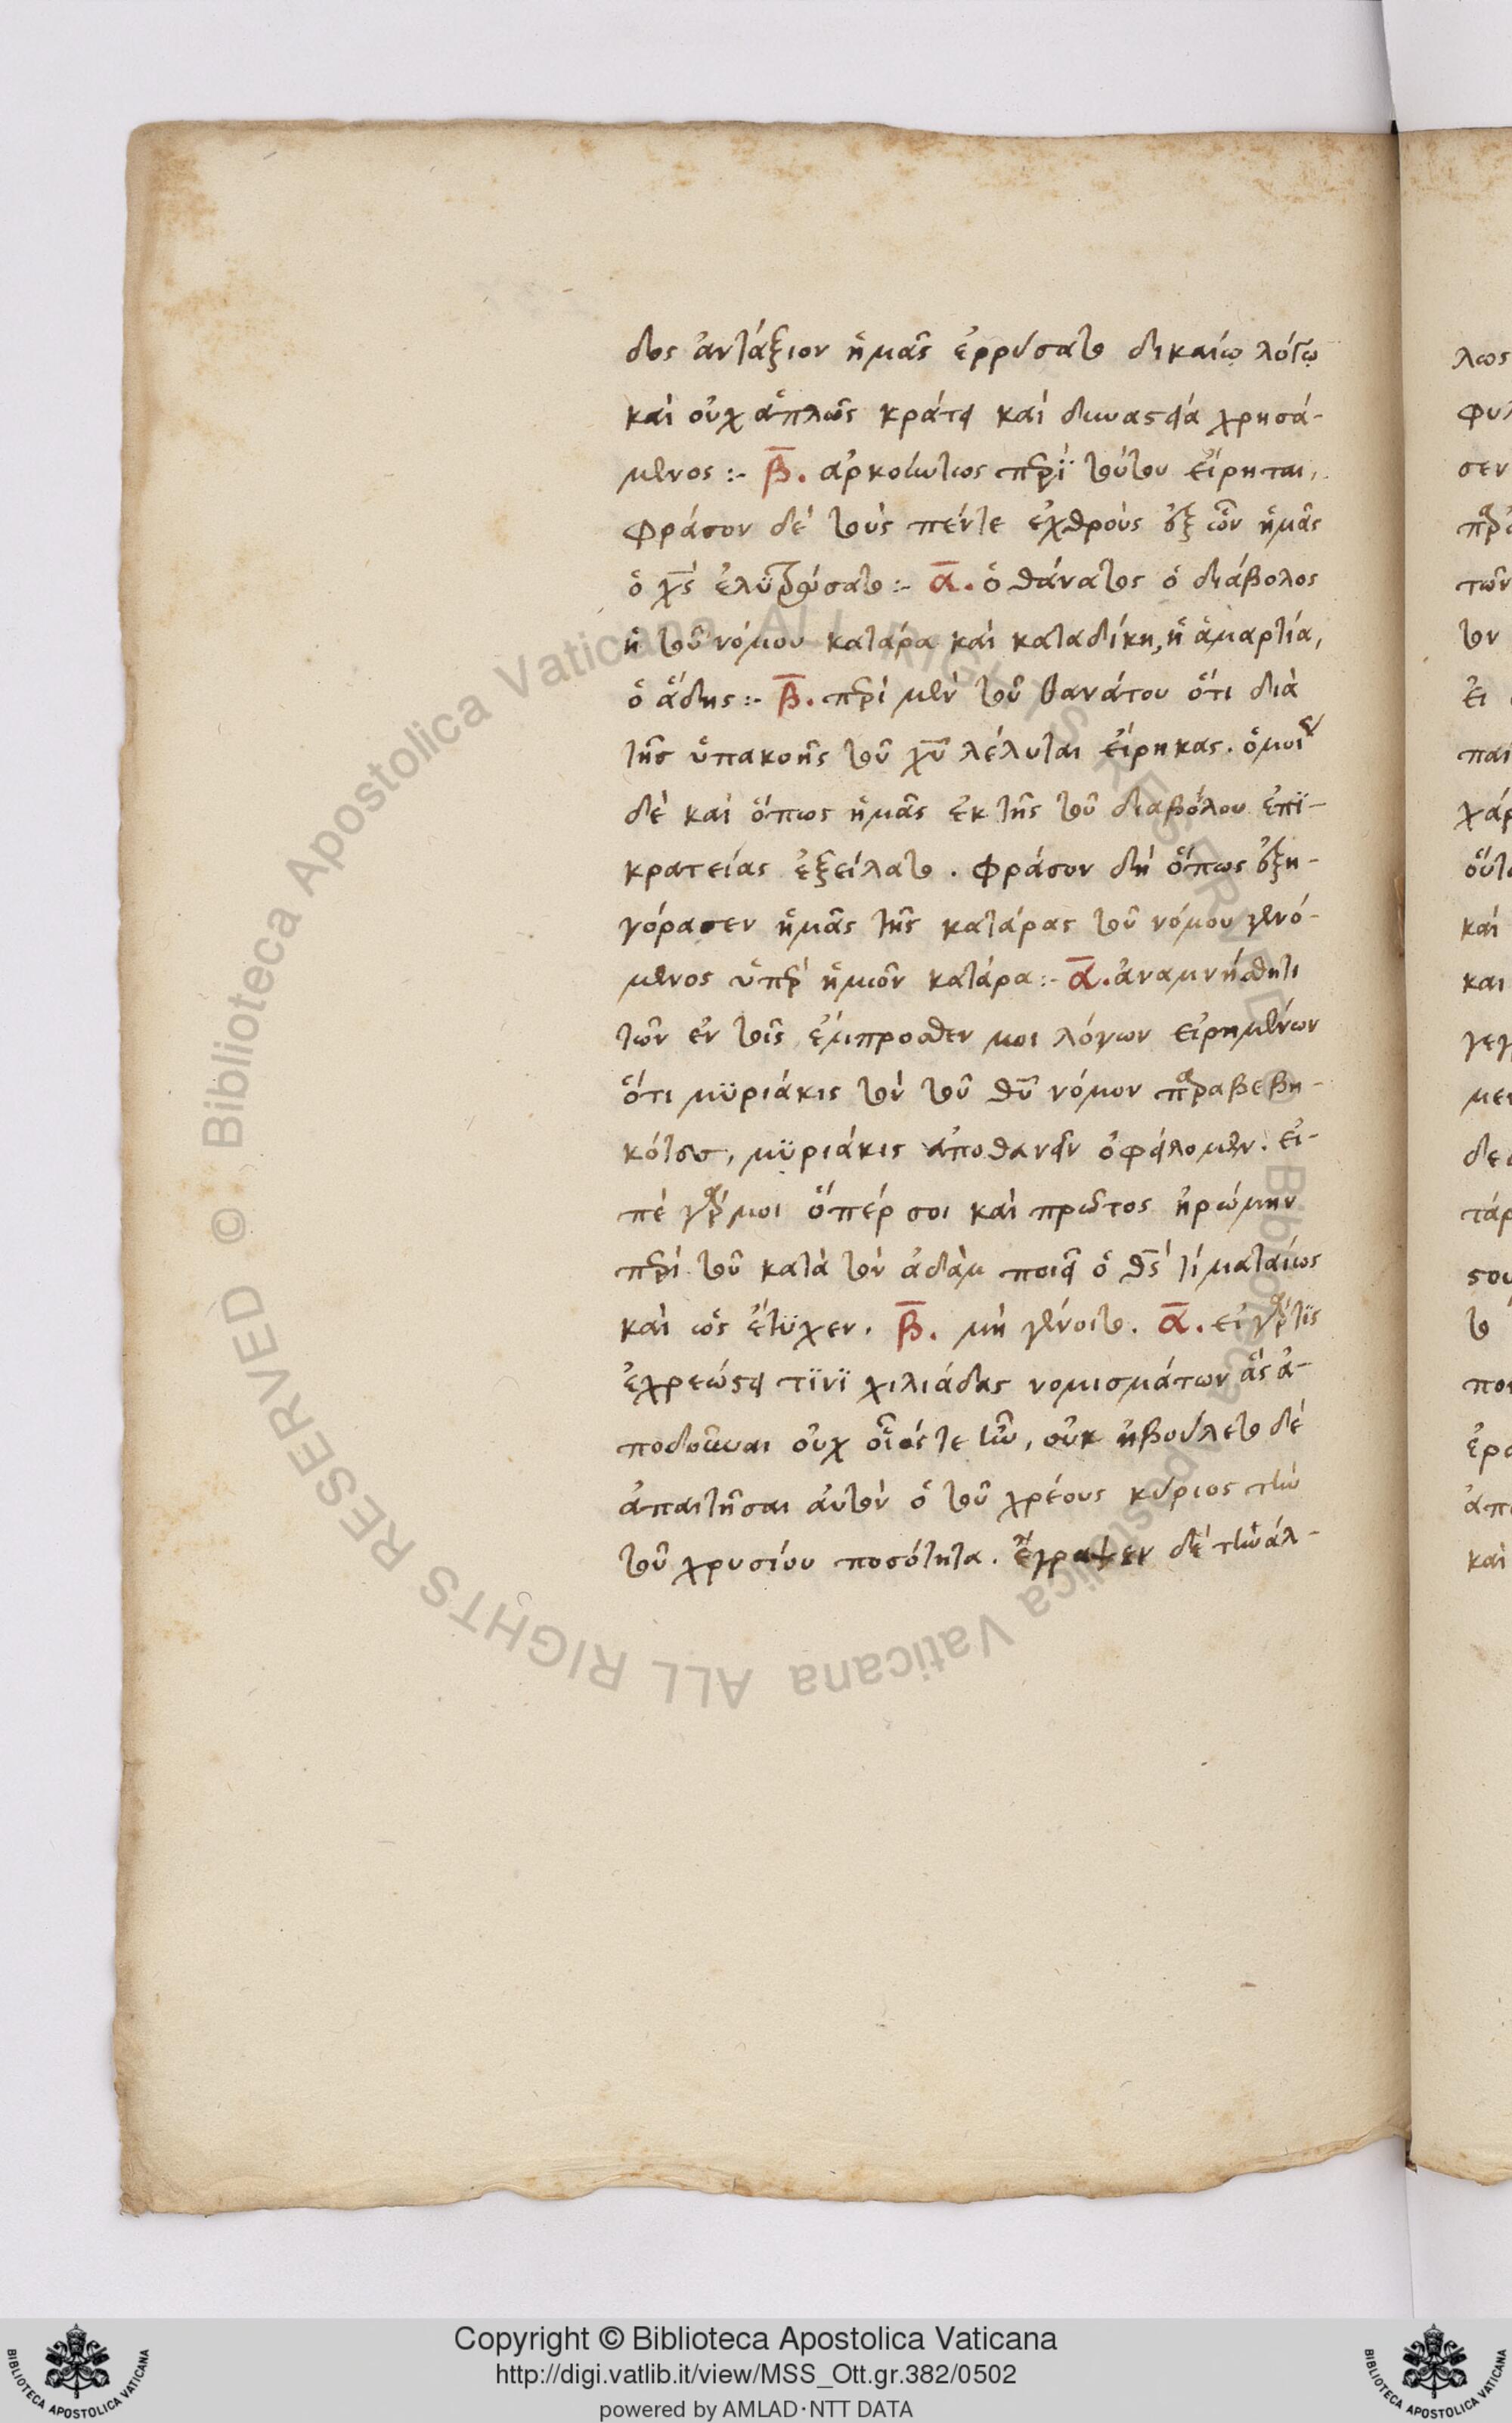 δος ἀντάξιον ἡμᾶς ἐρρύσατο δικαίῳ λόγῳ
καὶ οὐχ ἁπλῶς κράτει καὶ δυναστεία χρησά-
μενος :- Β̅. ἀρκούντως περὶ τούτου εἴρηται,
φράσον δὲ τοὺς πέντε ἐχθροὺς ἐξ ὧν ἡμᾶς
ὁ χ̅ς̅ ἐλϋτρώσατο :- α̅. ὁ θάνατος ὁ διάβολος
ἡ τοῦ νόμου κατάρα καὶ καταδίκη, ἡ ἁμαρτία,
ὁ ἅδης :- Β̅. περὶ μὲν τοῦ θανάτου ὅτι διὰ
τῆσ ὑπακοῆς τοῦ χ̅υ̅ λέλυται εἴρηκας. ὁμοί
δὲ καὶ ὅπως ἡμᾶς ἐκ τῆς τοῦ διαβόλου ἐπϊ-
κρατείας ἐξείλατο. φράσον δὴ ὅπως ἐξη-
γόρασεν ἡμᾶς τῆς κατάρας τοῦ νόμου γενό-
μενος ὑπὲρ ἡμῶν κατάρα :- α̅. ἀναμνήσθητι
τῶν ἐν τοῖς ἔμπροσθεν μοι λόγων εἰρημένων
ὅτι μϋριάκις τὸν τοῦ θ̅υ̅ νόμον παραβεβη-
κότεσ, μϋριάκις ἀποθανεῖν ὀφείλομεν. εἰ-
πὲ γάρ μοι ὅπέρ σοι καὶ πρώτος ἠρώμην
περὶ τοῦ κατὰ τὸν ἀδὰμ ποιεῖ ὁ θ̅ς̅ τί ματαίως
καὶ ὡς ἔτϋχεν. Β̅. μὴ γένοιτο. α̅. εἰ γάρ τϊς
ἐχρεώστει τϊνϊ χιλιάδας νομισμάτων ἃς ἀ-
ποδοῦναι οὐχ οἷός τε ἦν, οὐκ ἠβούλετο δὲ
ἀπαιτῆσαι αὐτὸν ὁ τοῦ χρέους κύριος τὴν
τοῦ χρυσίου ποσότητα. ἔγραψεν δὲ τὴν ἀλ-
λως
φυλ
σεν
τῶν
τον
εἰ
παι
χάρ
οὕτ
καὶ
και
γεγ
μεν
δε
τάρ
στου
το
ποι
ἐρ
ἀπ
καὶ
Biblioteca Apostolica Vaticana ALL RIGHTS RESERVED ©
Biblioteca Apostolica Vaticana ALL RIGHTS RESERVED ©
Copyright © Biblioteca Apostolica Vaticana
http://digi.vatlib.it/view/MSS_Ott.gr.382/0502
powered by AMLAD·NTT DATA
BIBLIOTECA APOSTOLICA VATICANA
BIBLIOTECA APOSTOLICA VATICANA